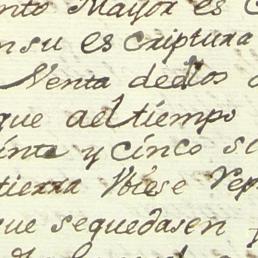 nto Mayor es C
en su es criptura
Venta dedlos
que ael tiempo
inte y cinco s
tierra Vbiese Rep
que sequedasen